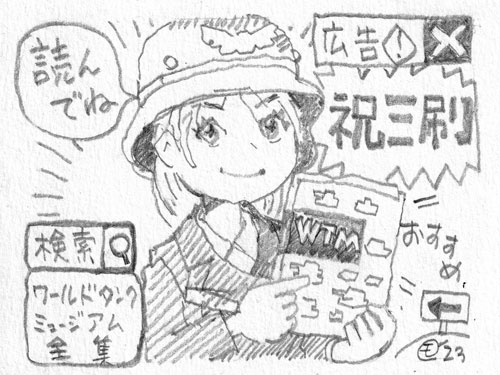 読んでね
広告!
祝三刷
WTM
おすすめ
検索
ワールドタンク
ミュージアム
全集
'23